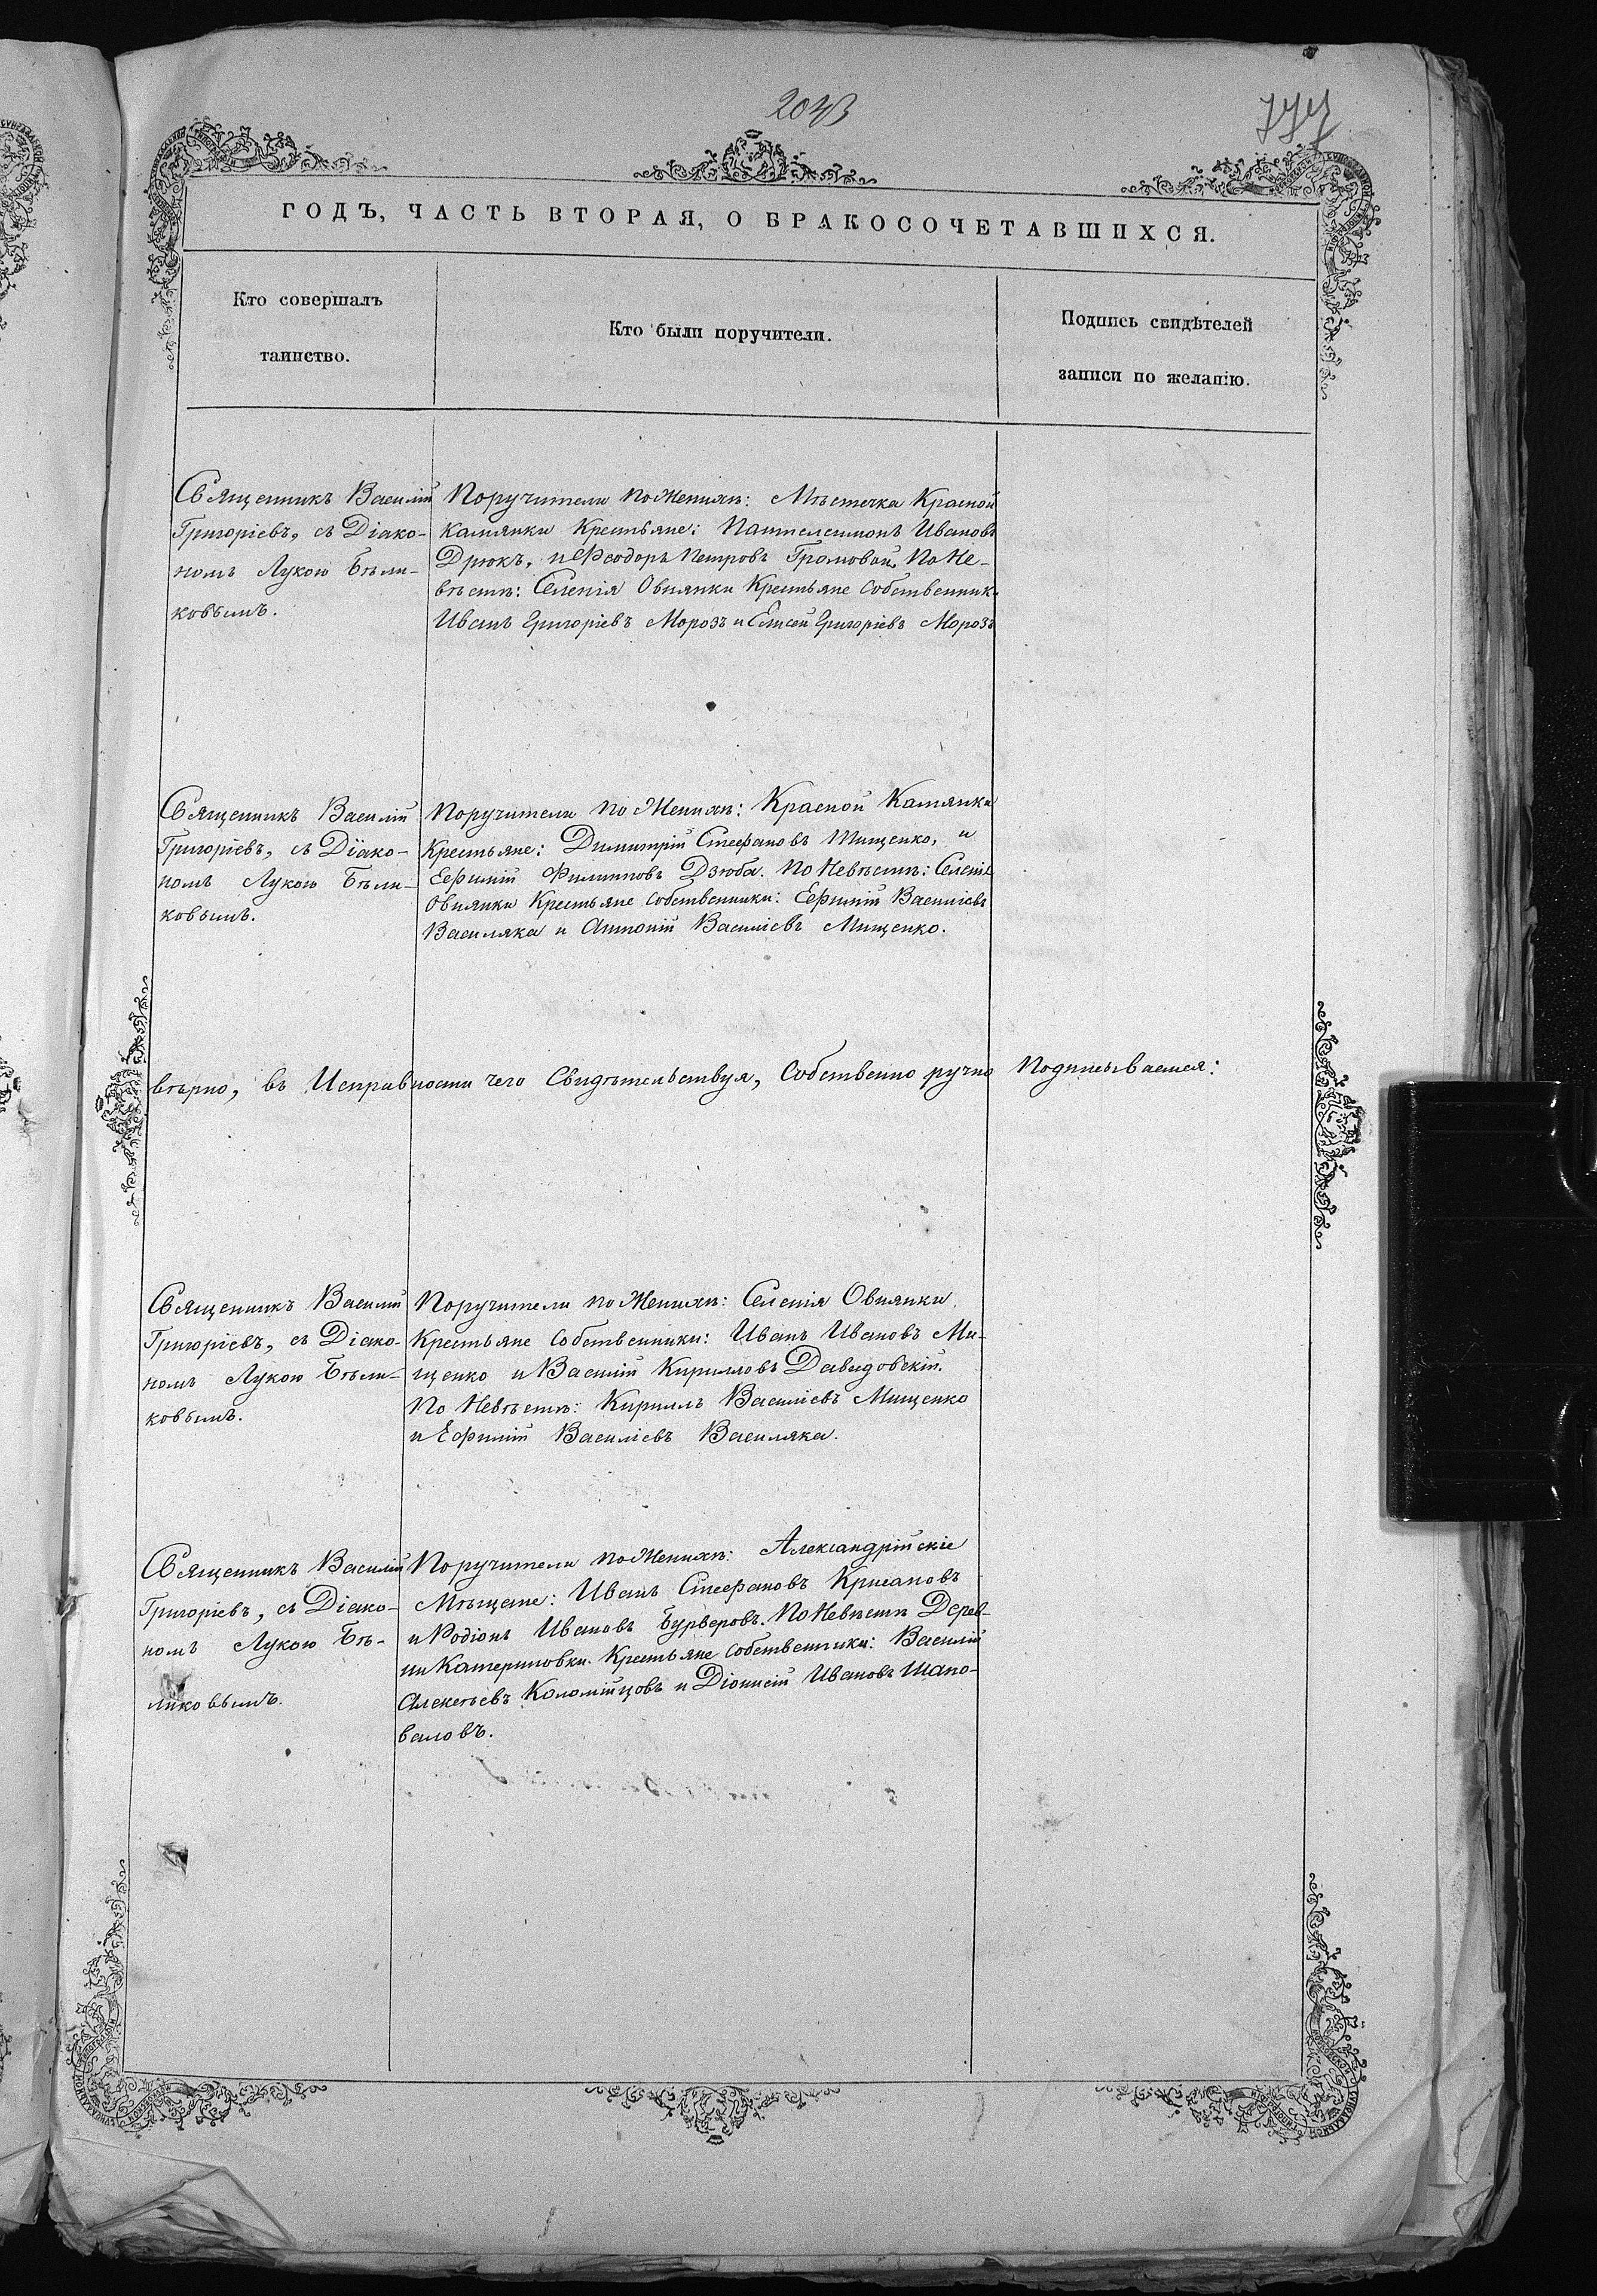 2043
777
ГОДЪ, ЧАСТЬ ВТОРАЯ, О БРАКОСОЧЕТАВШИХСЯ.
Кто совершалъ
таинство.
Кто были поручители.
Подпись свидѣтелей
записи по желанію.
Священникъ Василій
Григоріевъ, съ Діако-
номъ Лукою Бѣли-
ковымъ.
Поручители по Женихѣ: Мѣстечка Красной
Камянки Крестьяне: Пантелеимонъ Ивановъ
Дрюкъ, и Феодоръ Петровъ Громовой, По Не-
вѣстѣ: Селенія Овнянки Крестьяне собственник
Иванъ Григоріевъ Морозъ и Елисей Григоріевъ Морозъ
Священникъ Василій
Григоріевъ, съ Діако-
номъ Лукою Бѣли-
ковымъ.
Поручители по Женихѣ: Красной Камянки
Крестьяне: Димитрій Стефановъ Тищенко, и
Ефимій Филиповъ Дзюба. По Невѣстѣ: Селенія
Овнянки Крестьяне собственники: Ефимій Василіевъ
Василяка и Антоній Василіевъ Мищенко.
вѣрно, въ Исправности чего Свидѣтельствуя, Собственно ручно Подписываемся:
Священникъ Василій
Григоріевъ, съ Діако-
номъ Лукою Бѣли-
ковымъ.
Поручители по Женихѣ: Селенія Овнянки
Крестьяне собственники: Иванъ Ивановъ Ми-
щенко и Василій Кирилловъ Давидовскій.
По Невѣстѣ: Кириллъ Василіевъ Мищенко
и Ефимій Василіевъ Василяка.
Священникъ Василій
Григоріевъ, съ Діако-
номъ Лукою Бѣ-
ликовымъ.
Поручители по Женихѣ: Александрійскіе
Мѣщане: Иванъ Стефановъ Крисановъ
и Родіонъ Ивановъ Бурверовъ. По Невѣстѣ Дерев-
ни Катериновки. Крестьяне собственники: Василій
Алексѣевъ Коломійцовъ и Діонисій Ивановъ Шапо-
валовъ.